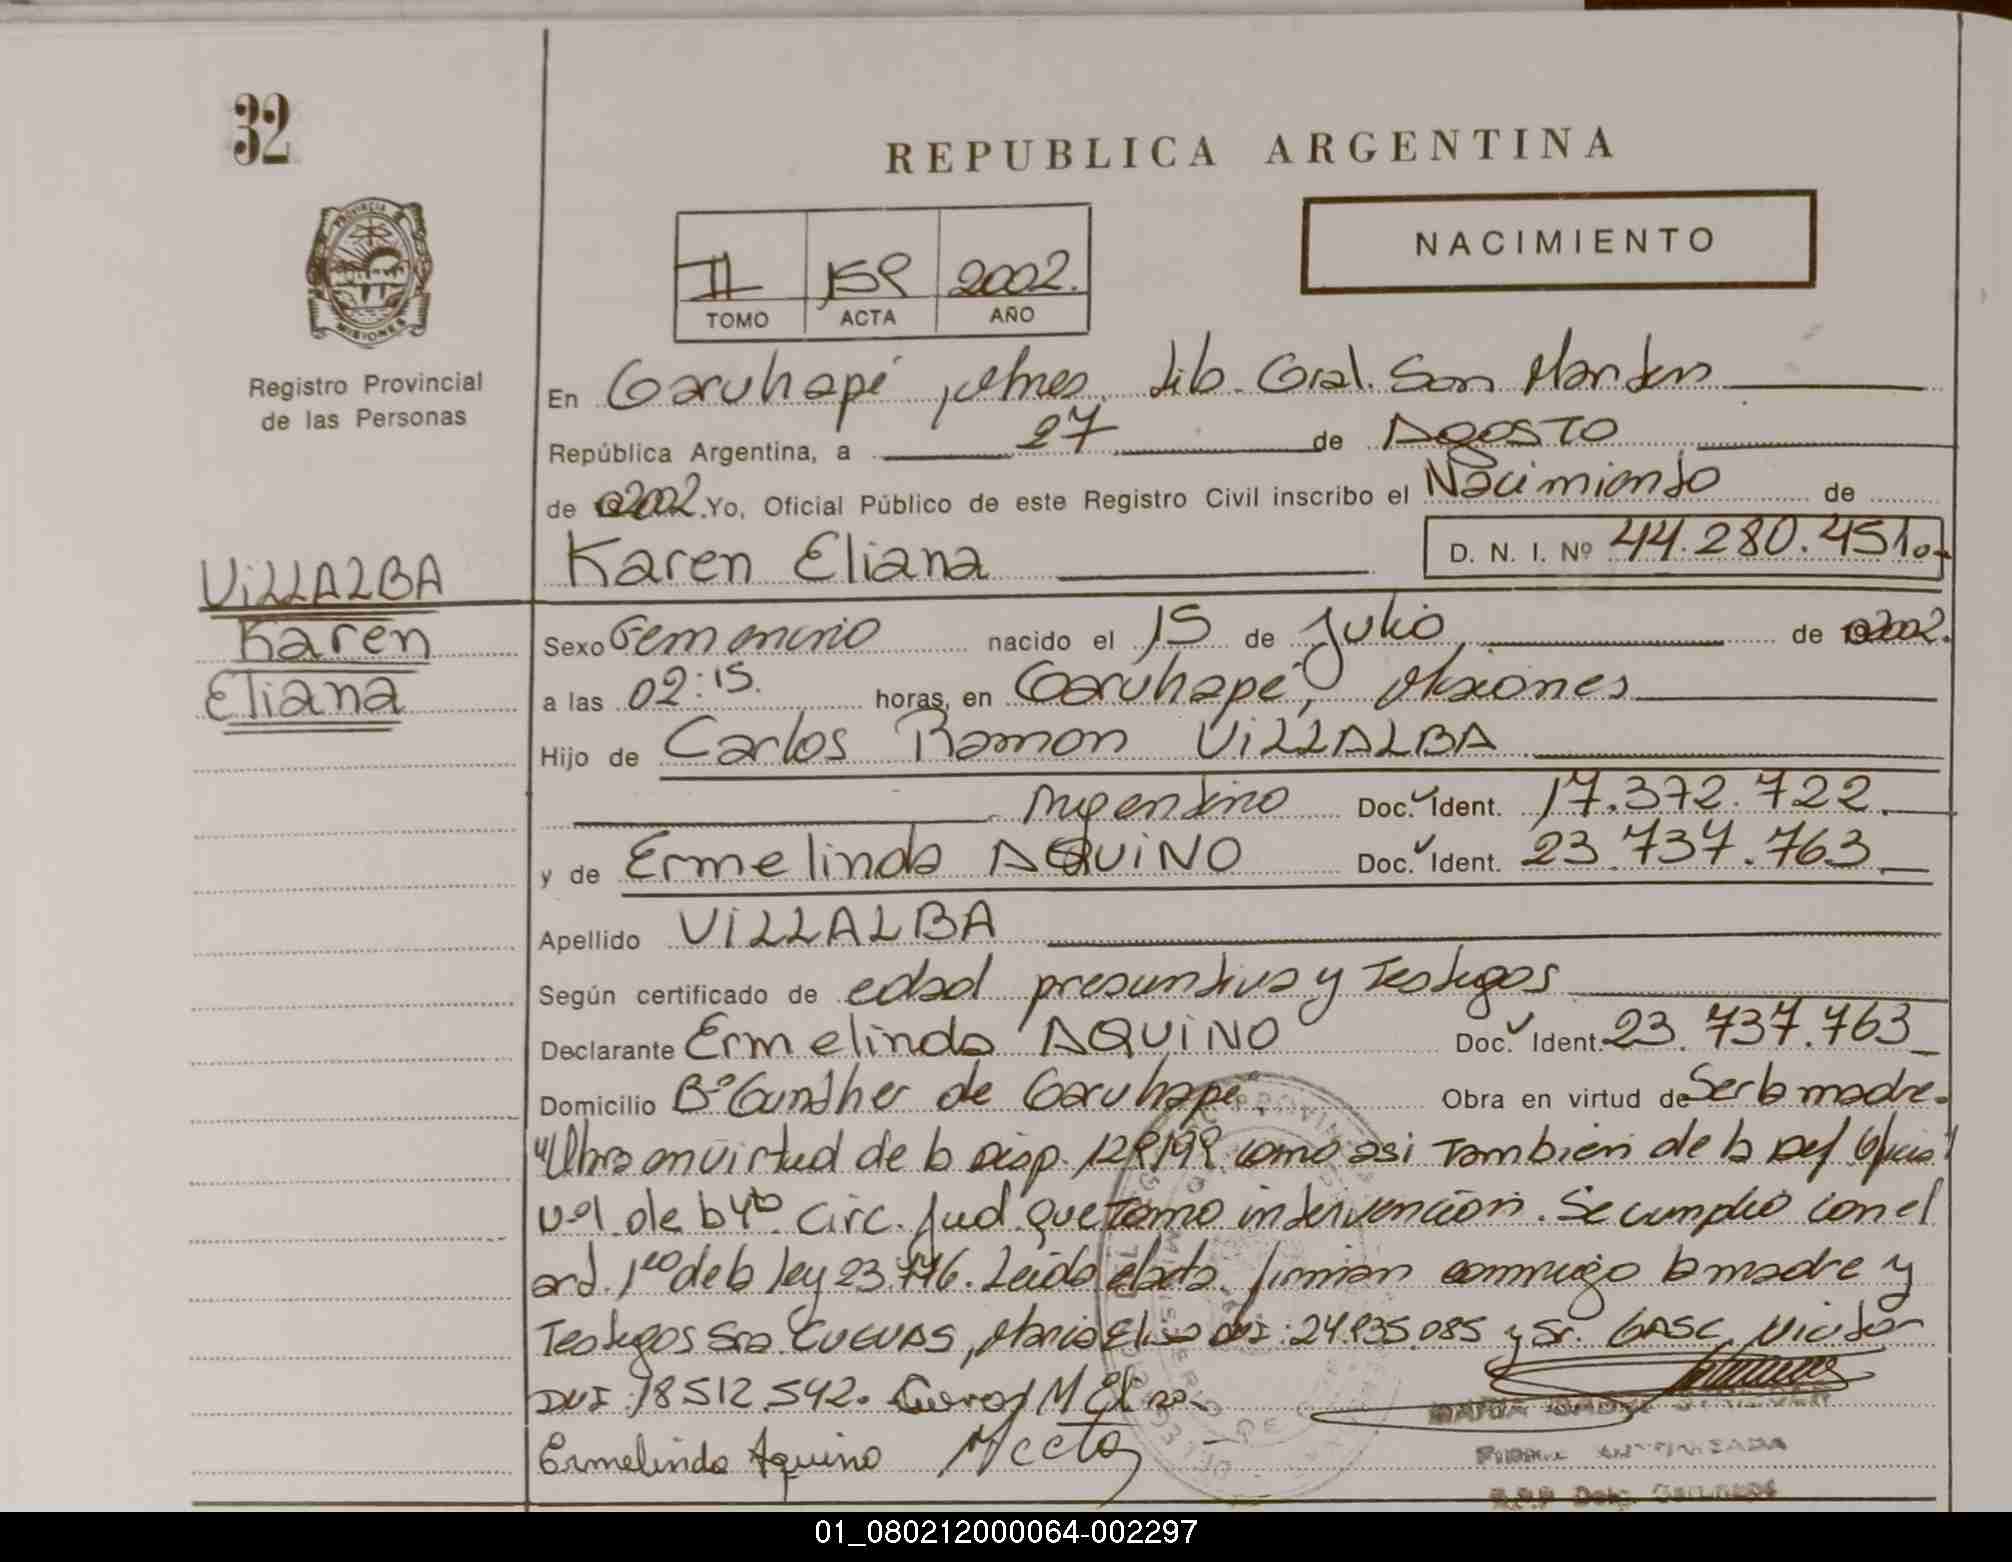 32
REPUBLICA ARGENTINA
NACIMIENTO
II 159 2002.
TOMO ACTA AÑO
PROVINCIA DE MISIONES
Registro Provincial
de las Personas
En Garuhapé, Mnes. Lib. Gral. San Martín
República Argentina, a 27 de AGOSTO
de 2002. Yo, Oficial Público de este Registro Civil inscribo el Nacimiento de
Karen Eliana D. N. I. Nº 44.280.451.-
VILLALBA
Karen
Eliana
Sexo Femenino nacido el 15 de Julio de 2002.
a las 02:15. horas, en Garuhapé, Misiones
Hijo de Carlos Ramon VILLALBA
Argentino Doc. Ident. 17.372.722.
y de Ermelinda AQUINO Doc. Ident. 23.737.763
Apellido VILLALBA
Según certificado de edad presuntiva y Testigos
Declarante Ermelinda AQUINO Doc. Ident. 23.737.763
Domicilio Bº Gunther de Garuhapé. Obra en virtud de Ser la madre.
en virtud de la Disp. 129/99 como asi También de la Def. Oficial
Nº1 de la 4ta Circ. Jud. que Tomo intervención. Se cumplio con el
art. 1ro de la ley 23.776. Leida el acta firman conmigo la madre y
Testigos Sra CUEVAS, Maria Elisa DNI: 24.935.085 y Sr. GASC, Victor
DNI: 18.512.542.
Ermelinda Aquino
01_080212000064-002297